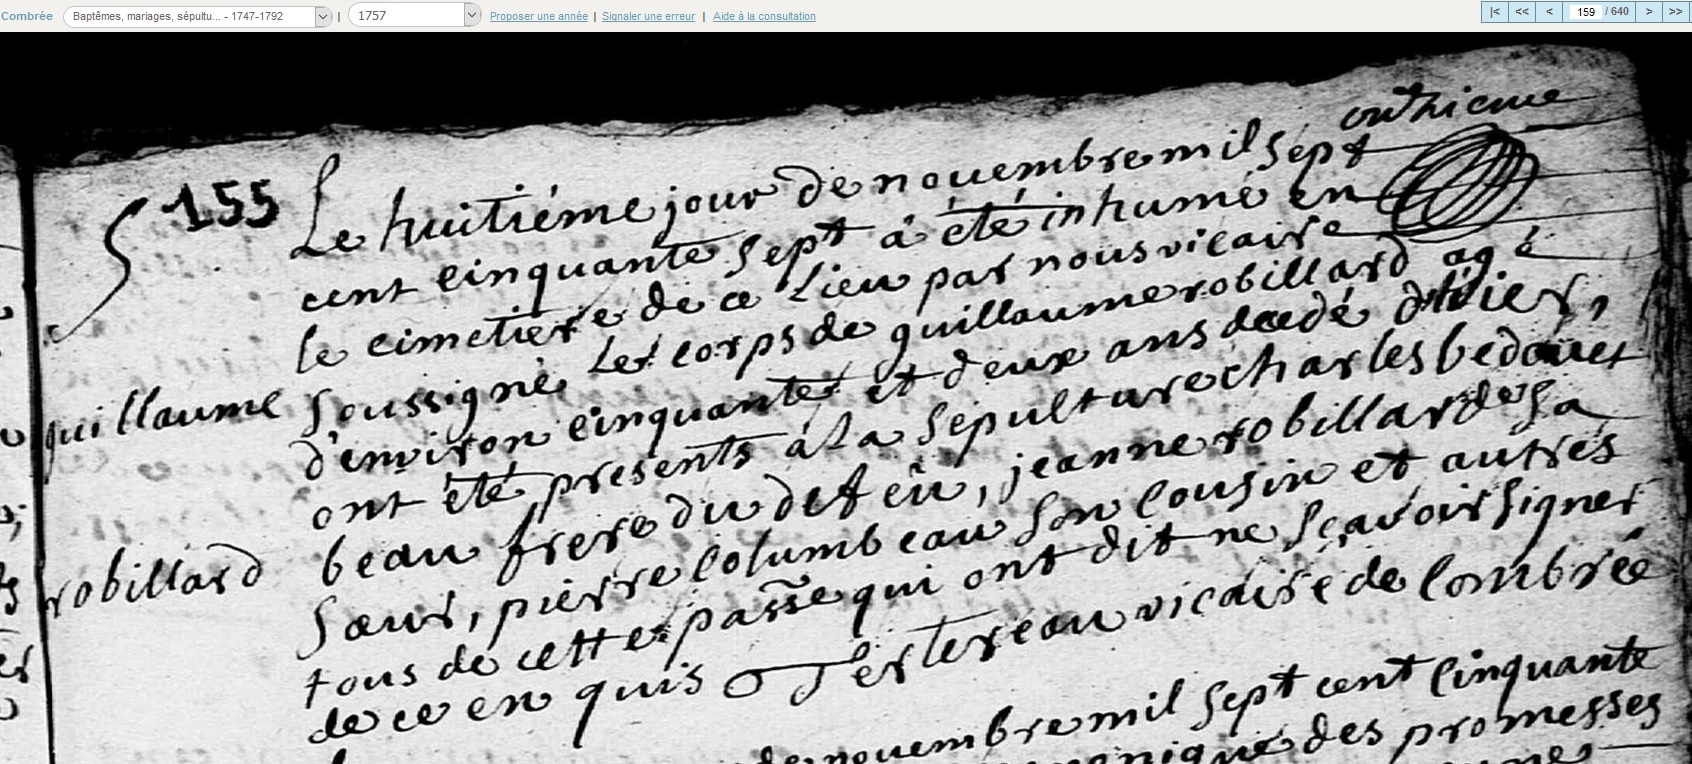 Combrée Baptêmes, mariages, sépultu... - 1747-1792 | 1757 Proposer une année | Signaler une erreur | Aide à la consultation |< << < 159 / 640 > >>
onzhieme
155 Le huitiéme jour de novembre mil sept
cent cinquante sept à été inhumé en
le cimetiere de ce Lieu par nous vicaire
soussigné Le corps de guillaume robillard agé
d'environ cinquante et deux ans decedé d'hier,
ont été presents à La sépulture charles bedouet
beau frere du defeu, jeanne robillard sa
sœur, pierre Columbeau son Cousin et autres
tous de cette passe qui ont dit ne sçavoir signer
de ce enquis
vicaire de Combrée
guillaume
robillard
de novembre mil sept cent Cinquante
des promesses